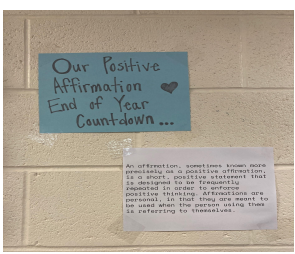 Our Positive
Affirmation
End of Year
Countdown...
An affirmation, sometimes known more
precisely as a positive affirmation,
is a short, positive statement that
is designed to be frequently
repeated in order to enforce
positive thinking. Affirmations are
personal, in that they are meant to
be used when the person using them
is referring to themselves.